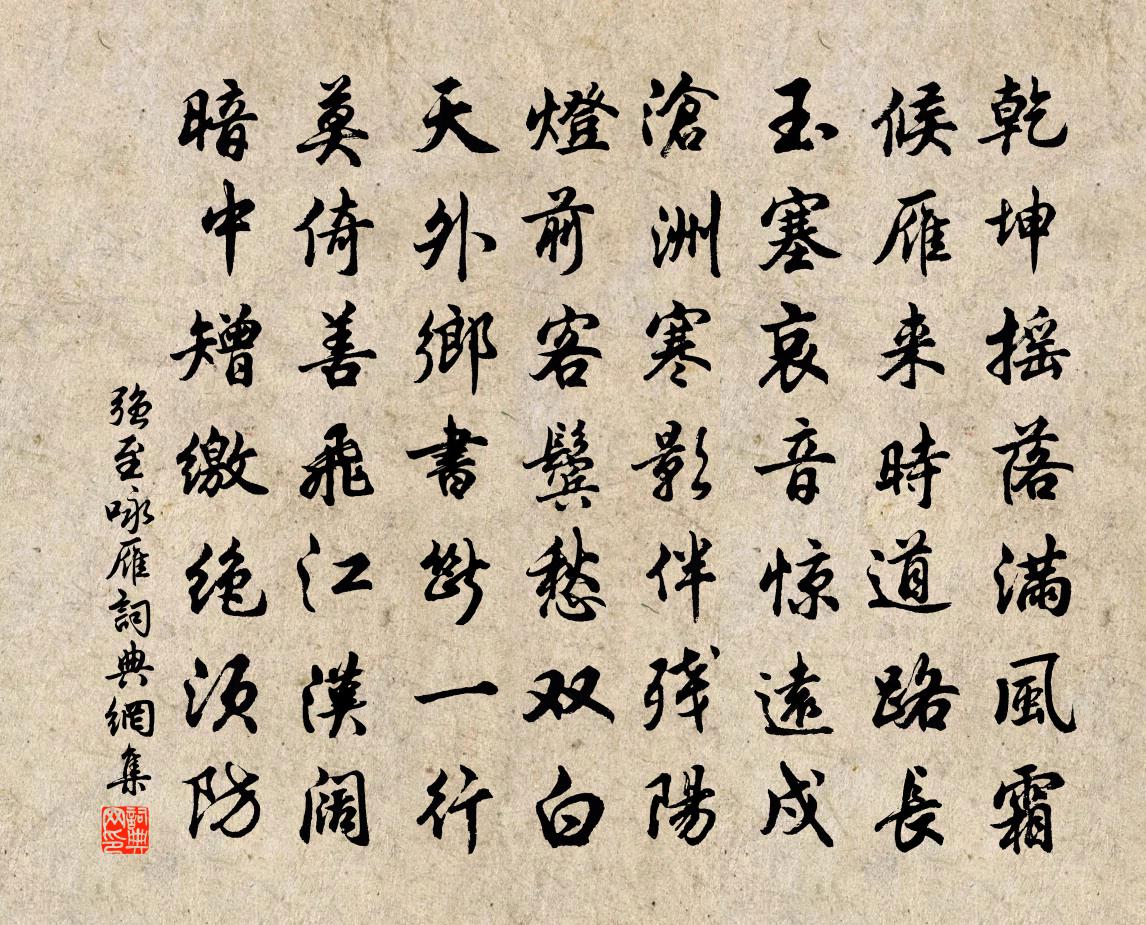 乾坤摇落满風霜
候雁来時道路長
玉塞哀音惊遠戍
滄洲寒影伴残陽
燈前客鬓愁双白
天外鄉書断一行
莫倚善飛江漢闊
暗中矰缴绝須防
强至咏雁詞典網集
詞典网印